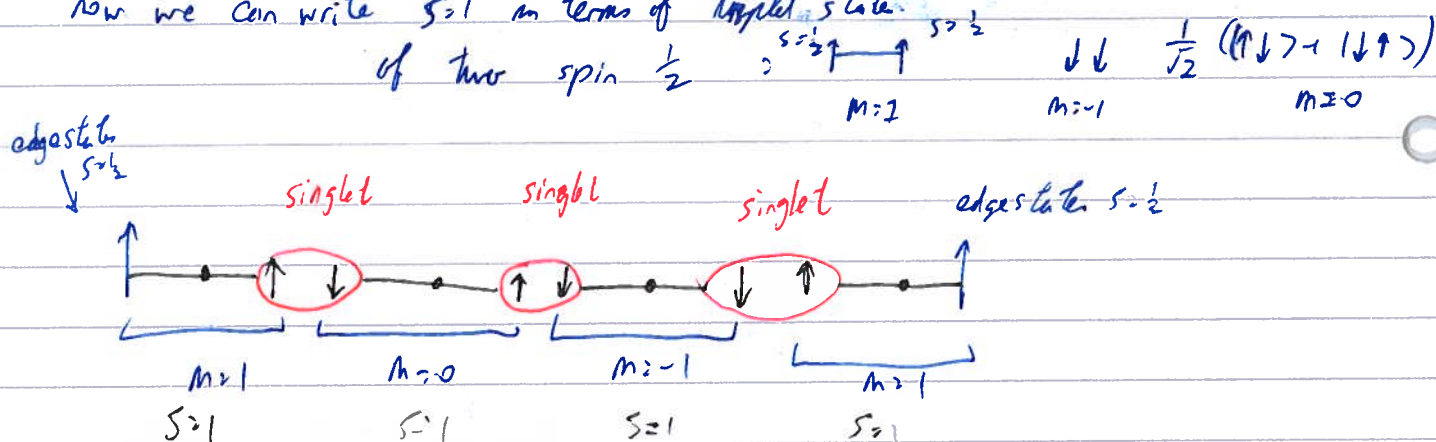 now we can write S=1 in terms of triplet state
of two spin 1/2 : S=1/2 ↑ ↑ S=1/2 ↓↓ 1/√2 (|↑↓>+|↓↑>)
m=1 m=-1 m=0
edgestates
S=1/2
singlet singlet singlet edgestates S=1/2
↑ ↑ ↓ ↑ ↓ ↓ ↑ ↑
m=1 m=0 m=-1 m=1
S=1 S=1 S=1 S=1